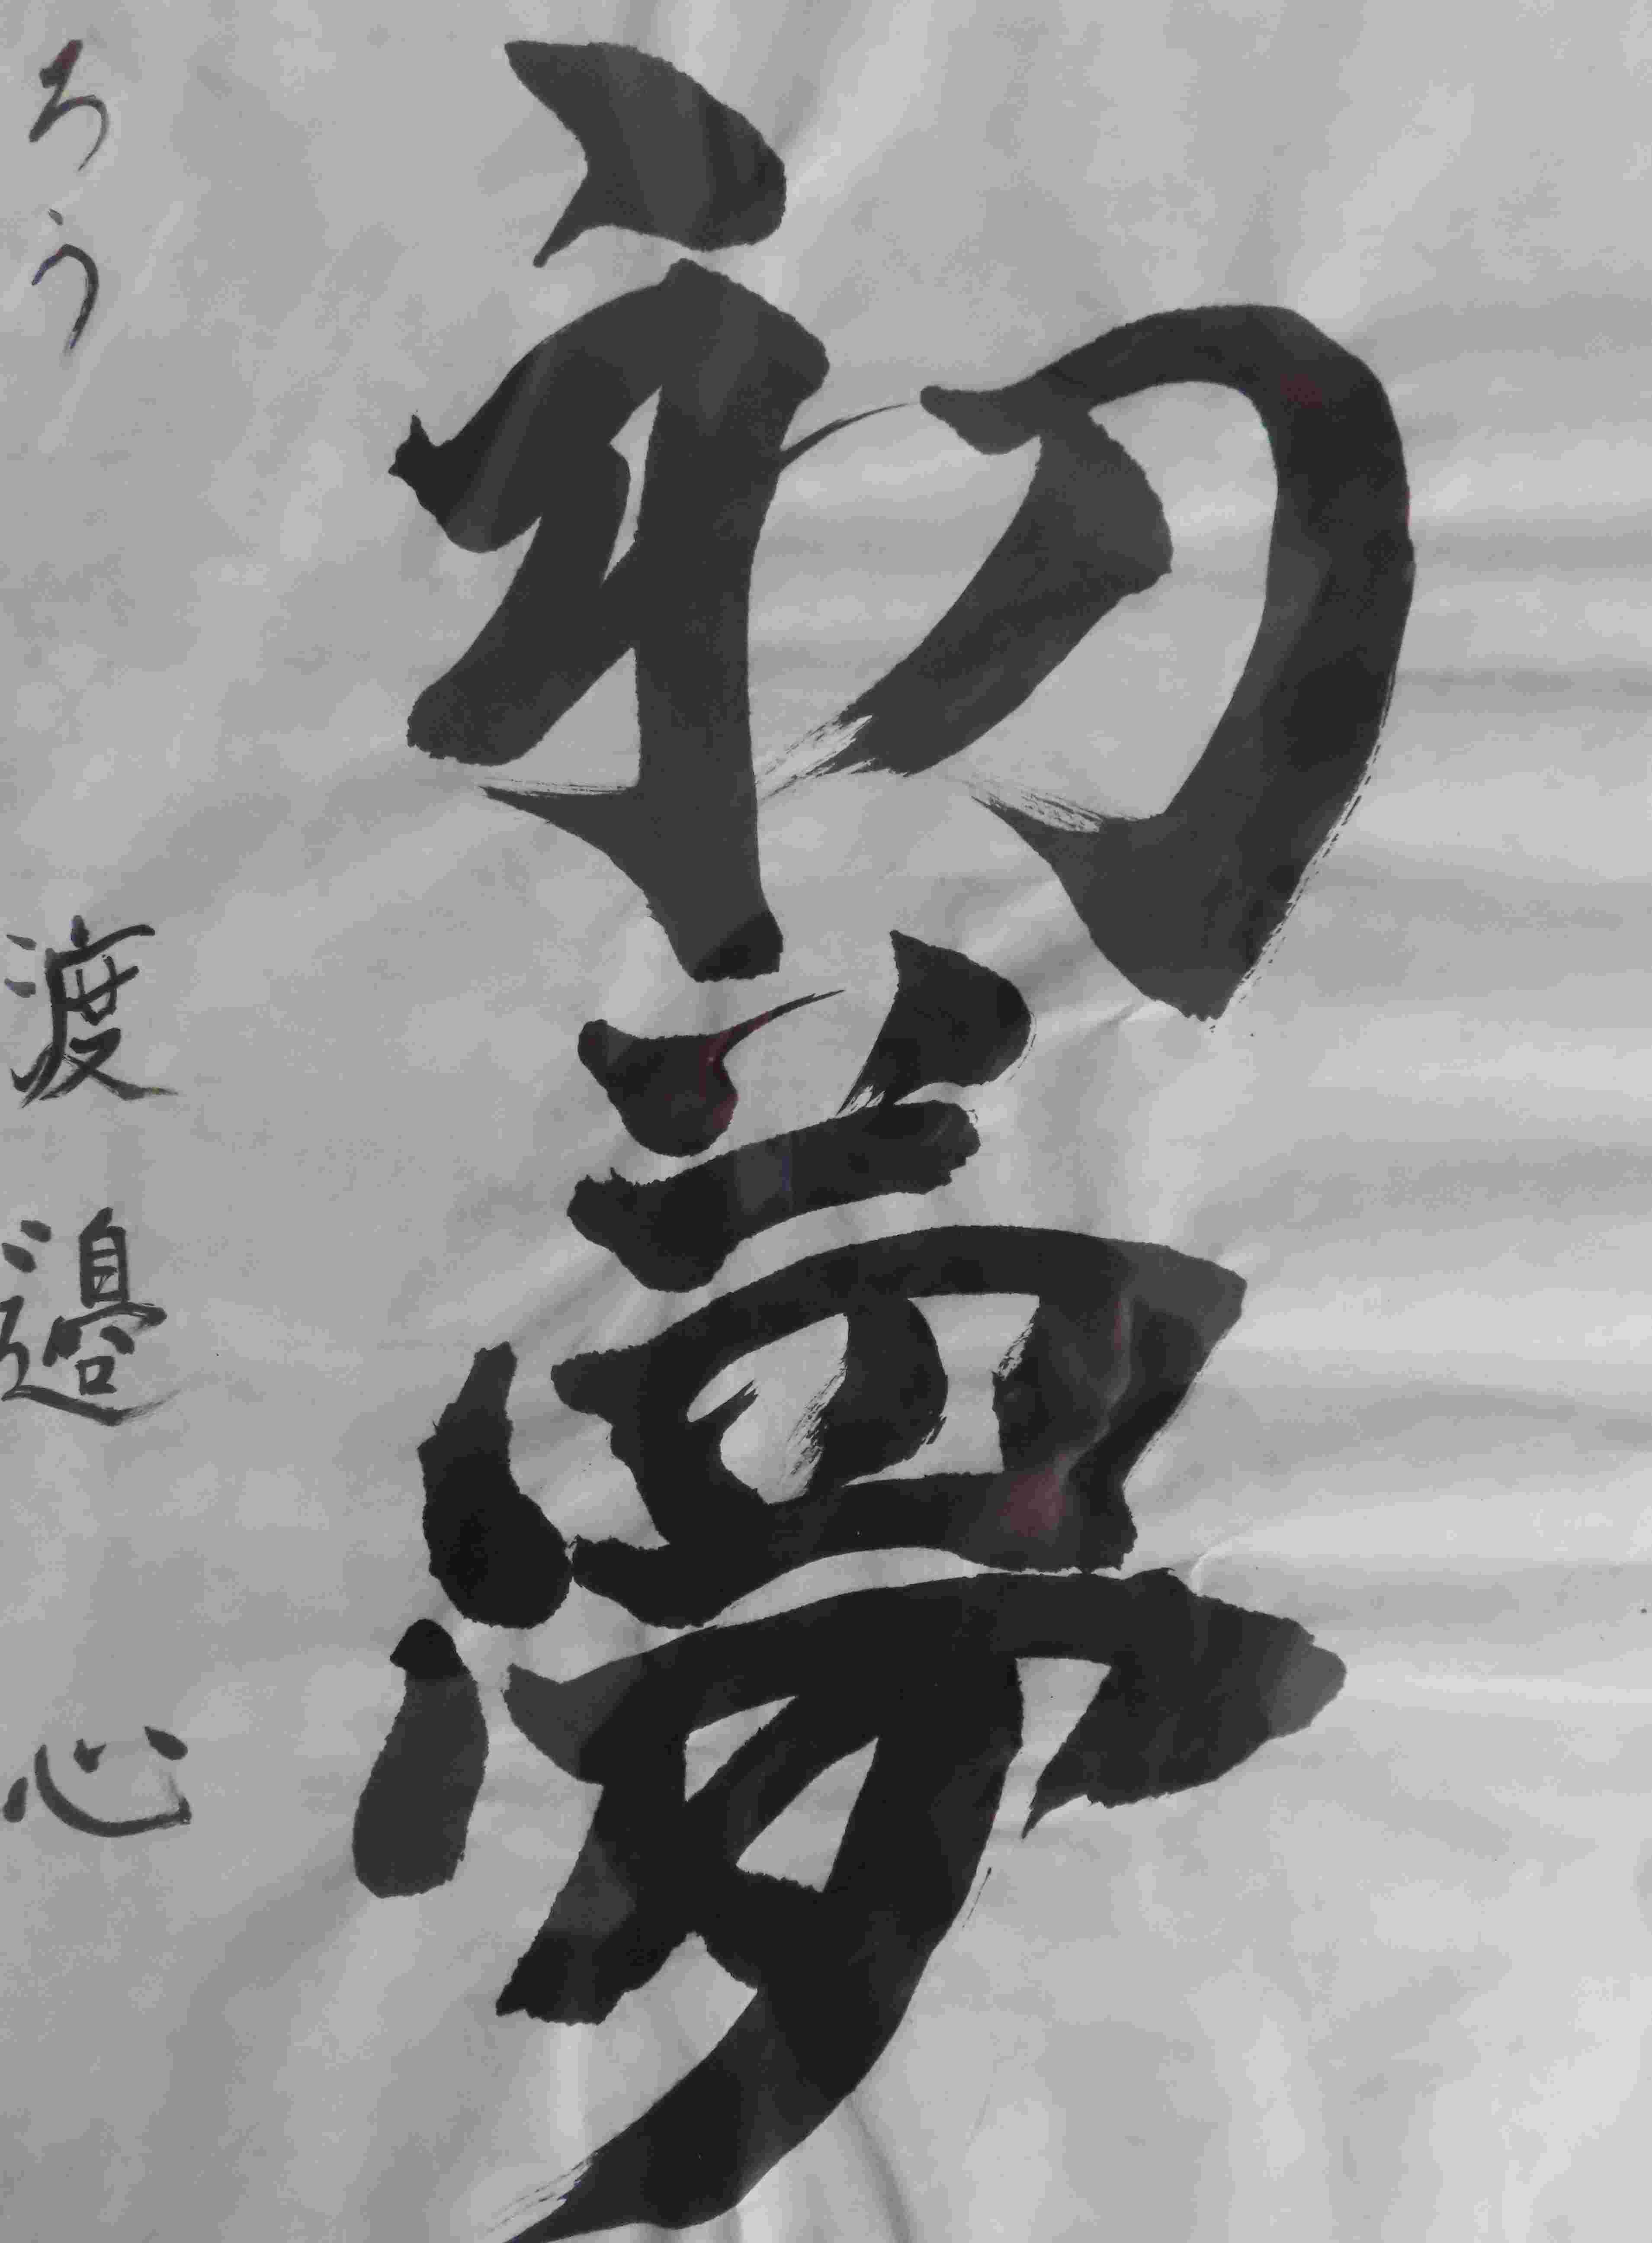 初夢
ろう 渡邉心